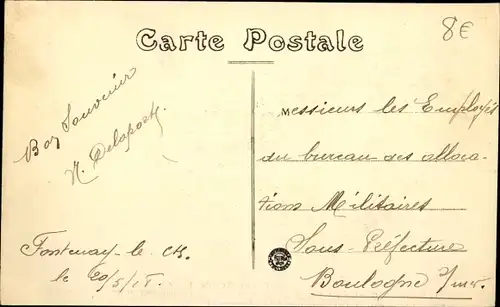 8€
Carte Postale
Bon Souvenir
N. Delaporte.
Fontenay-le-Ch.
le 20/5/15.
Messieurs les Employés
du bureau des alloca-
tions Militaires
Sous-Préfecture
Boulogne s/mer.